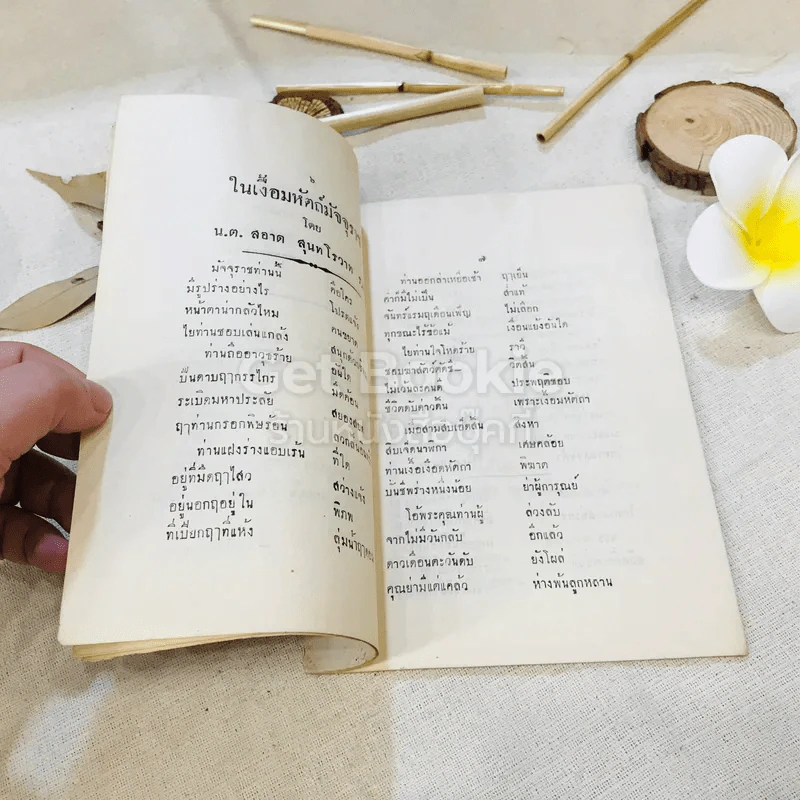 ๖
ในเงื้อมหัตถ์มัจจุรา
โดย
น.ต. สอาด สุนทโรวาท
มัจจุราชท่านนี้ คือใคร
มีรูปร่างอย่างไร โปรดแจ้ง
หน้าตาน่ากลัวไหม คนขยาด
ไยท่านชอบเล่นแกล้ง
ท่านถืออาวุธร้าย อันใด
ปืนดาบฤๅกรรไกร มีดค้อน
ระเบิดมหาประลัย
ฤๅท่านกรอกพิษร้อน
ท่านแฝงร่างแอบเร้น ที่ใด
อยู่ที่มืดฤๅไสว สว่างแจ้ง
อยู่นอกฤอยู่ใน พิภพ
ที่เปียกฤๅที่แห้ง ลุ่มน้ำฤๅดอน
๗
ท่านออกล่าเหยื่อเช้า ฤๅเย็น
ค่ำก็มิไม่เป็น ส่ำแท้
จันทร์แรมฤเดือนเพ็ญ ไม่เลือก
ทุกขณะไร้ข้อแม้ เงื่อนแย้งอันใด
ไยท่านใจโหดร้าย ราวี
ชอบฆ่าสัตว์ตัดชี– วิตสิ้น
ไม่เว้นละคนดี ประพฤตชอบ
ชีวิตดับด่าวดิ้น เพราะเงื้อมหัตถา
เมื่อสามสิบเอ็ดสิ้น สิงหา
สิบเจ็ดนาฬิกา เศษคล้อย
ท่านเงื้อเงือดหัตถา พิฆาต
บันชีพร่างหนึ่งน้อย ย่าผู้การุณย์
โอ้พระคุณท่านผู้ ล่วงลับ
จากไม่มีวันกลับ อีกแล้ว
ดาวเดือนตะวันดับ ยังโผล่
คุณย่ามีแต่แคล้ว ห่างพ้นลูกหลาน
Get Bookie
ร้านหนังสือบุ๊คกี้